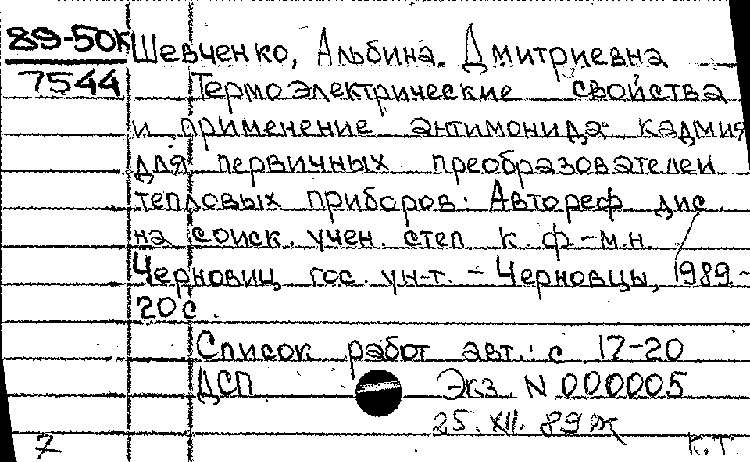 89-50к Шевченко, Альбина Дмитриевна
7544 Термоэлектрические свойства
и применение антимонида кадмия
для первичных преобразователей
тепловых приборов: Автореф дис
на соиск. учен. степ к. ф-м.н.
Черновиц. гос. ун-т. - Черновцы, 1989.-
20 с.
Список работ авт.: с 17-20
ДСП Экз N 000005
25. XII. 89
7 К.Т.